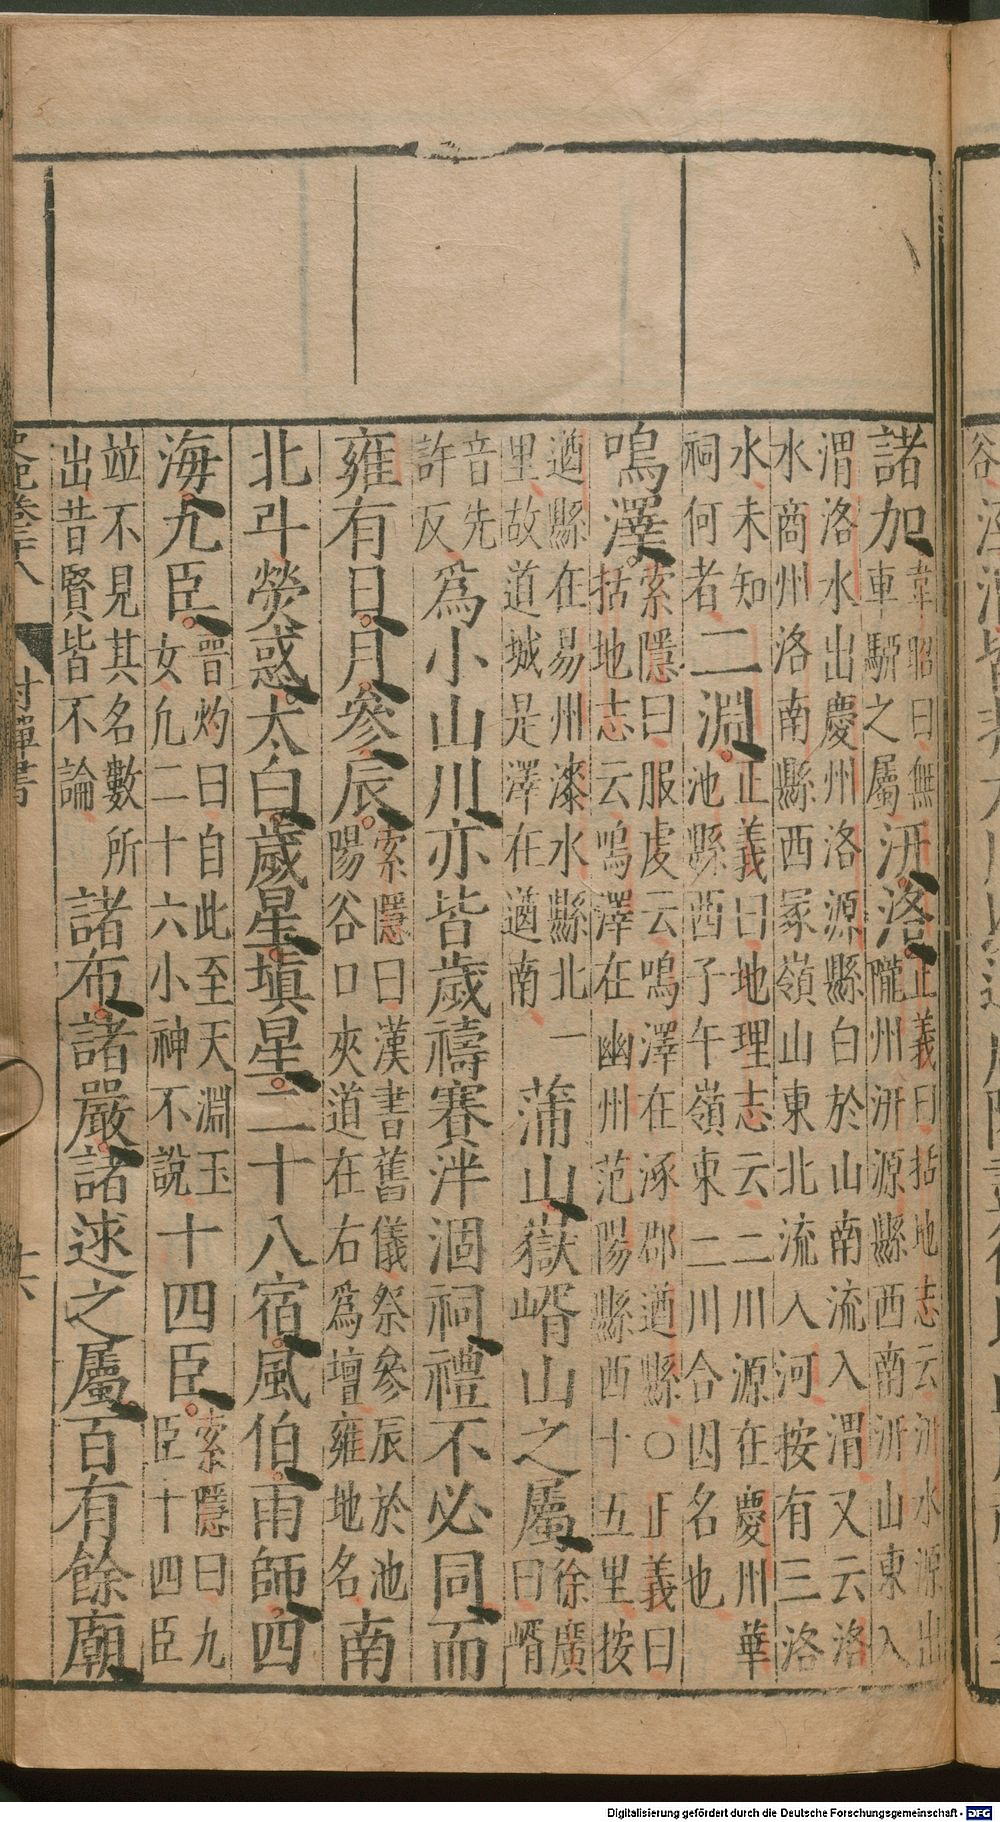 諸加韋昭曰無車騑之屬汧洛正義曰括地志云汧水源出隴州汧源縣西南汧山東入
渭洛水出慶州洛源縣白於山南流入渭又云洛水商州洛南縣西冢嶺山東北流入河按有三洛
水未知祠何者二淵正義曰地理志云二川源在慶州華池縣西子午嶺東二川合因名也
鳴澤索隱曰服虔云鳴澤在涿郡遒縣○正義曰括地志云鳴澤在幽州范陽縣西十五里按
遒縣在易州漆水縣北一里故道城是澤在遒南蒲山嶽㟧山之屬徐廣曰㟧
音先許反為小山川亦皆歲禱賽泮涸祠禮不必同而
雍有日月參辰索隱曰漢書舊儀祭參辰於池陽谷口夾道在右為壇雍地名南
北斗熒惑太白歲星填星二十八宿風伯雨師四
海九臣晉灼曰自此至天淵玉女凢二十六小神不說十四臣索隱曰九臣十四臣
並不見其名數所出昔賢皆不論諸布諸嚴諸逑之屬百有餘廟
封禪書
十六
Digitalisierung gefördert durch die Deutsche Forschungsgemeinschaft - DFG